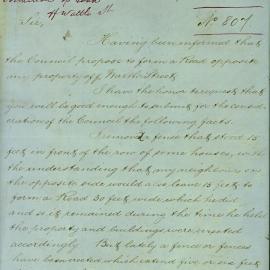 off Wattle St.
No 807
Sir,
Having been informed that
the Council propose to form a Road opposite
my property off Wattle Street
I have the honor to request that
you will be good enough to submit for the consid-
eration of the Council the following facts.
I removed a fence that stood 15
feet in front of the row of some houses, with
the understanding that my neighbour on
the opposite side would also leave 15 feet to
form a Road 30 feet wide, which he did
and so it remained during the time he held
the property and buildings were erected
accordingly. But lately a fence or fences
have been erected which extend five or six feet